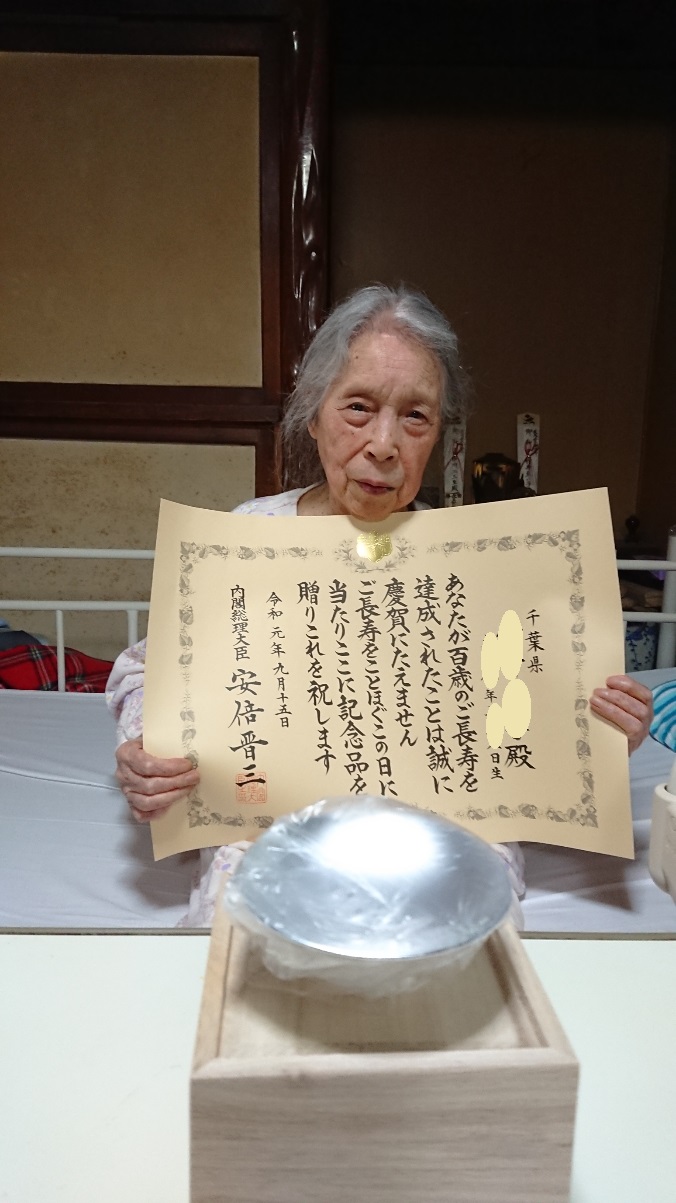 千葉県
年
日生
殿
あなたが百歳のご長寿を
達成されたことは誠に
慶賀にたえません
ご長寿をことほぐこの日に
当たりここに記念品を
贈りこれを祝します
令和元年九月十五日
内閣総理大臣 安倍晋三